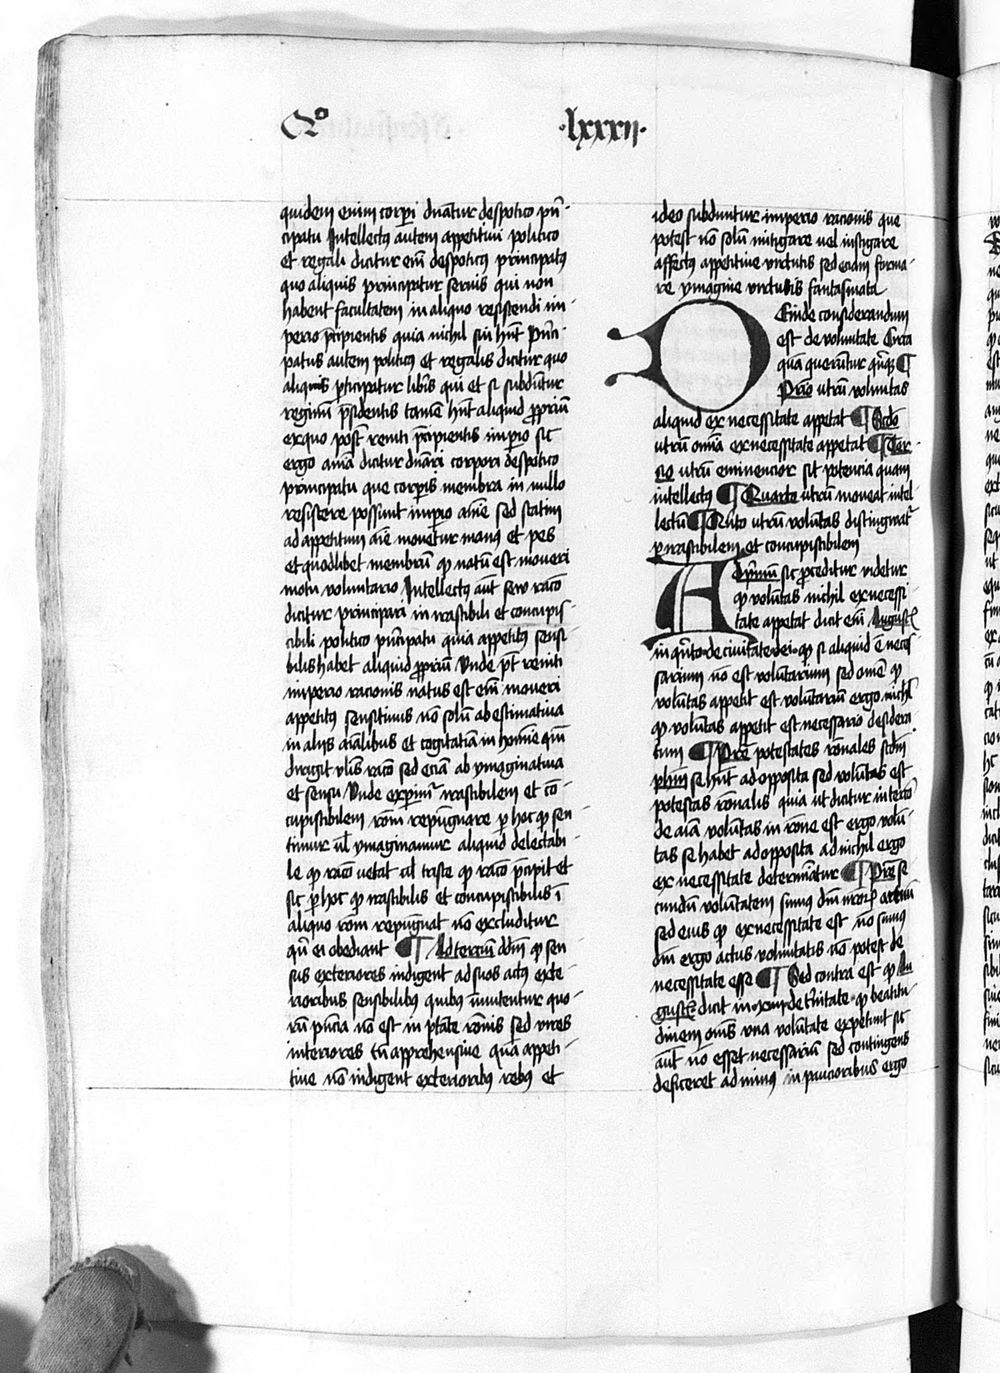 Qº ·lxxxij·
quidem enim corpori dnatur despotico pn̄-
cipatu Intellectus autem appetitui politico
et regali dicitur eni despoticus principatus
quo aliquis principatur seruis qui non
habent facultatem in aliquo resistendi im-
perio pcipientis quia nichil sui hnt Princi
patus autem politicus et regalis dicitur quo
aliquis pncipatur libis qui et si subduntur
regimī psidentis tamen hnt aliquid propriū
ex quo post reniti pcipientis impio sic
ergo aīa dicitur dnari corpori despotico
principatu que corpis membra in nullo
resistere possunt impio aīe sed statim
ad appetitum aīe mouetur manus et pes
et quodlibet membrū qd natū est moueri
motu voluntario Intellectus aūt seu raco
dicitur principari in irascibili et concupis
cibili politico principatu quia appetitus sensi
bilis habet aliquid propriū Unde pt reniti
imperio racionis natus est eni moueri
appetitus sensitiuus nō solū ab estimatiua
in alijs aīalibus et cogitatiua in homine quā
dirigit vlis raco sed eciam ab ymaginatiua
et sensu Unde experimur irascibilem et cō-
cupiscibilem rōni repugnare p hoc qd sen
timur ul ymaginamur aliquid delectabi-
le qd raco uetat uel triste qd raco pcipit et
sic p hoc qd irascibilis et concupiscibilis ī
aliquo rōni repugnat nō excluditur
quī ei obediant ¶ Ad terciū ddm qd sen
sus exteriores indigent ad suos actus exte-
rioribus sensibilibus quibus īmutentur quo-
rū pncia nō est in ptate rōnis sed vires
interiores tā apprehensiue quā appeti-
tiue nō indigent exterioribus rebus et
ideo subduntur imperio racionis que
potest nō solū mitigare uel instigare
affectus appetitiue virtutis sed eciam forma-
re ymaginie virtutis fantasmata
Deinde considerandum
est de voluntate Circa
quā queruntur quīque ¶
Prio utrū voluntas
aliquid ex necessitate appetat ¶ Scdo
utrū omīa ex necessitate appetat ¶ Ter-
cio utrū eminencior sit potencia quam
intellectus ¶ Quarto utrū moueat intel-
lectū ¶ Quīto utrū volūtas distinguatr
p irascibilem et concupiscibilem
Ad primū sic proceditur videtur
qd volūtas nichil ex necessi-
tate appetat dicit eni August
in quīto de ciuitate dei qd si aliquid ē neces
sarium nō est voluntarium sed omē qd
voluntas appetit est voluntariū ergo nichil
qd voluntas appetit est necessario desidera
tum ¶ Pre potestates rōnales scdm
phm se hnt ad opposita sed voluntas est
potestas rōnalis quia ut dicitur in tercō
de aīa voluntas in rōne est ergo volū-
tas se habet ad opposita ad nichil ergo
ex necessitate determinatur ¶ Pre se
cundū voluntatem sumus dnī nrorū actuū
sed eius qd ex necessitate est nō sumus
dnī ergo actus voluntatis nō potest de
necessitate esse ¶ Sed contra est qd Au
gust dicit in xiij de trinitate qd beatitu-
dinem omīs una volūtate expetunt sic
aūt nō esset necessariū sed contingens
deficeret ad minus in paucioribus ergo